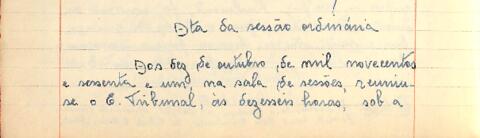 Ata da sessão ordinária
Aos dez de outubro, de mil novecentos
e sessenta e um, na sala de sessões, reuniu-
se o E. Tribunal, às dezesseis horas, sob a